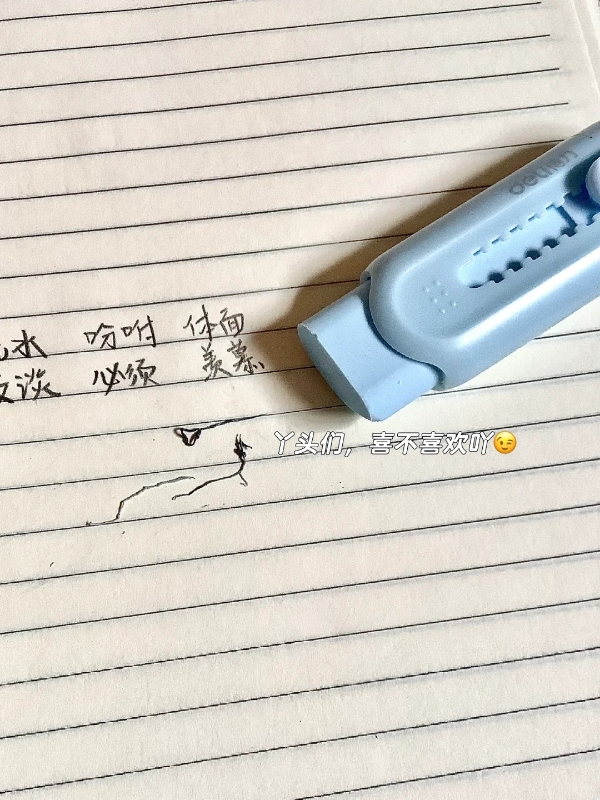 水 吩咐 体面
淡 必须 羡慕
丫头们，喜不喜欢吖😉